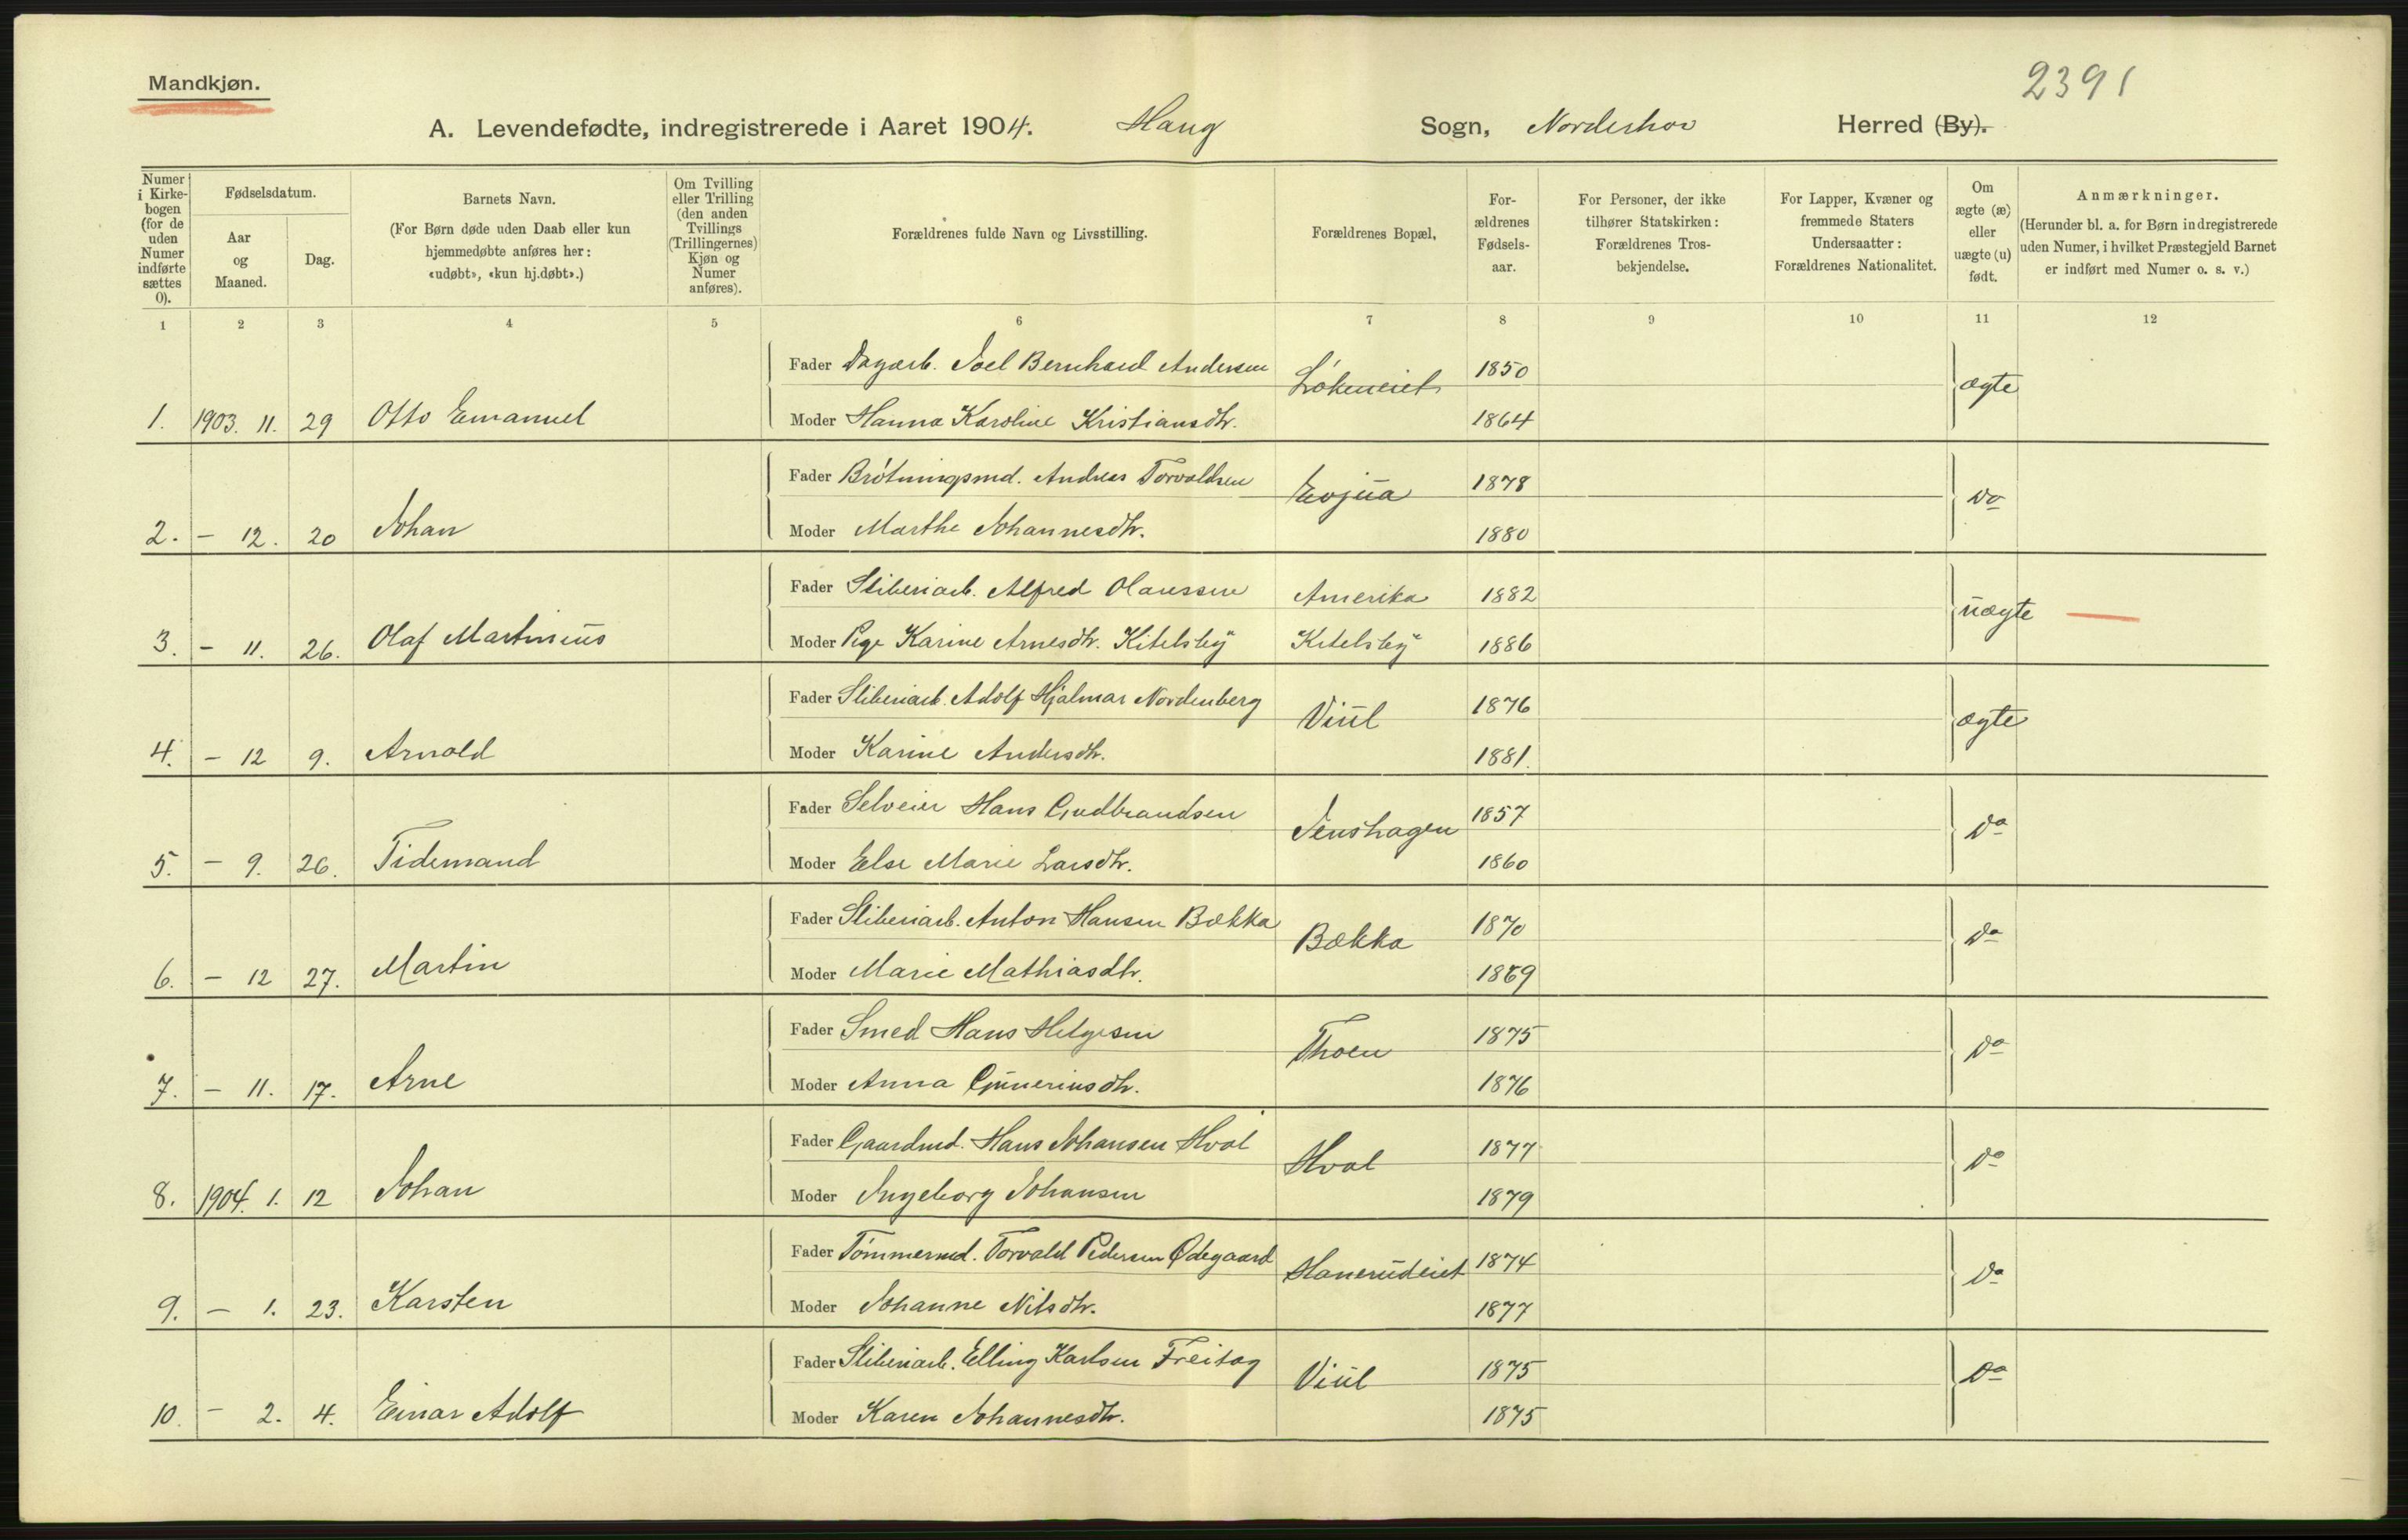 2391
Mandkjøn.
A. Levendefødte, indregistrerede i Aaret 1904. Haug Sogn, Norderhov Herred (By).
Numer i Kirkebogen (for de uden Numer indførte sættes 0).
Fødselsdatum.
Aar og Maaned.
Dag.
Barnets Navn.
(For Børn døde uden Daab eller kun hjemmedøbte anføres her: «udøbt», «kun hj.døbt».)
Om Tvilling eller Trilling (den anden Tvillings (Trillingernes) Kjøn og Numer anføres).
Forældrenes fulde Navn og Livsstilling.
Forældrenes Bopæl,
For-ældrenes Fødsels-aar.
For Personer, der ikke tilhører Statskirken: Forældrenes Tros-bekjendelse.
For Lapper, Kvæner og fremmede Staters Undersaatter: Forældrenes Nationalitet.
Om ægte (æ) eller uægte (u) født.
Anmærkninger.
(Herunder bl. a. for Børn indregistrerede uden Numer, i hvilket Præstegjeld Barnet er indført med Numer o. s. v.)
1 2 3 4 5 6 7 8 9 10 11 12
Fader Dagarb. Joel Bernhard Andersen Løkeneiet 1850 ægte
1. 1903. 11. 29 Otto Emanuel Moder Hanna Karoline Kristiansdtr. 1864
Fader Brøtningsmd. Andreas Torvaldsen Evjua 1878 do
2. — 12. 20 Johan Moder Marthe Johannesdtr. 1880
Fader Sliberiarb. Alfred Olaussen Amerika 1882 uægte
3. — 11. 26. Olaf Martinius Moder Pige Karine Arnesdtr. Kitelsby Kitelsby 1886
Fader Sliberiarb. Adolf Hjalmar Nordenberg Viul 1876 ægte
4. — 12 9. Arnold Moder Karine Andersdtr. 1881.
Fader Selveier Hans Gudbrandsen Jenshagen 1857 do
5. — 9. 26. Tidemand Moder Else Marie Larsdtr. 1860
Fader Sliberiarb. Anton Hansen Bækka Bækka 1870 do
6. — 12 27. Martin Moder Marie Mathiasdtr. 1869
Fader Smed Hans Helgesen Thoen 1875 do
7. — 11. 17. Arne Moder Anna Gunerius dtr. 1876
Fader Gaardmd. Hans Johansen Hval Hval 1877 do
8. 1904. 1. 12 Johan Moder Ingeborg Johansen 1879
Fader Tømmermd. Torvald Pedersen Ødegaard Hanerudeiet 1874 do
9. — 1. 23. Karsten Moder Johanne Nilsdtr. 1877
Fader Sliberiarb. Elling Karlsen Freitag Viul 1875 do
10. — 2. 4. Einar Adolf Moder Karen Johannesdtr. 1875